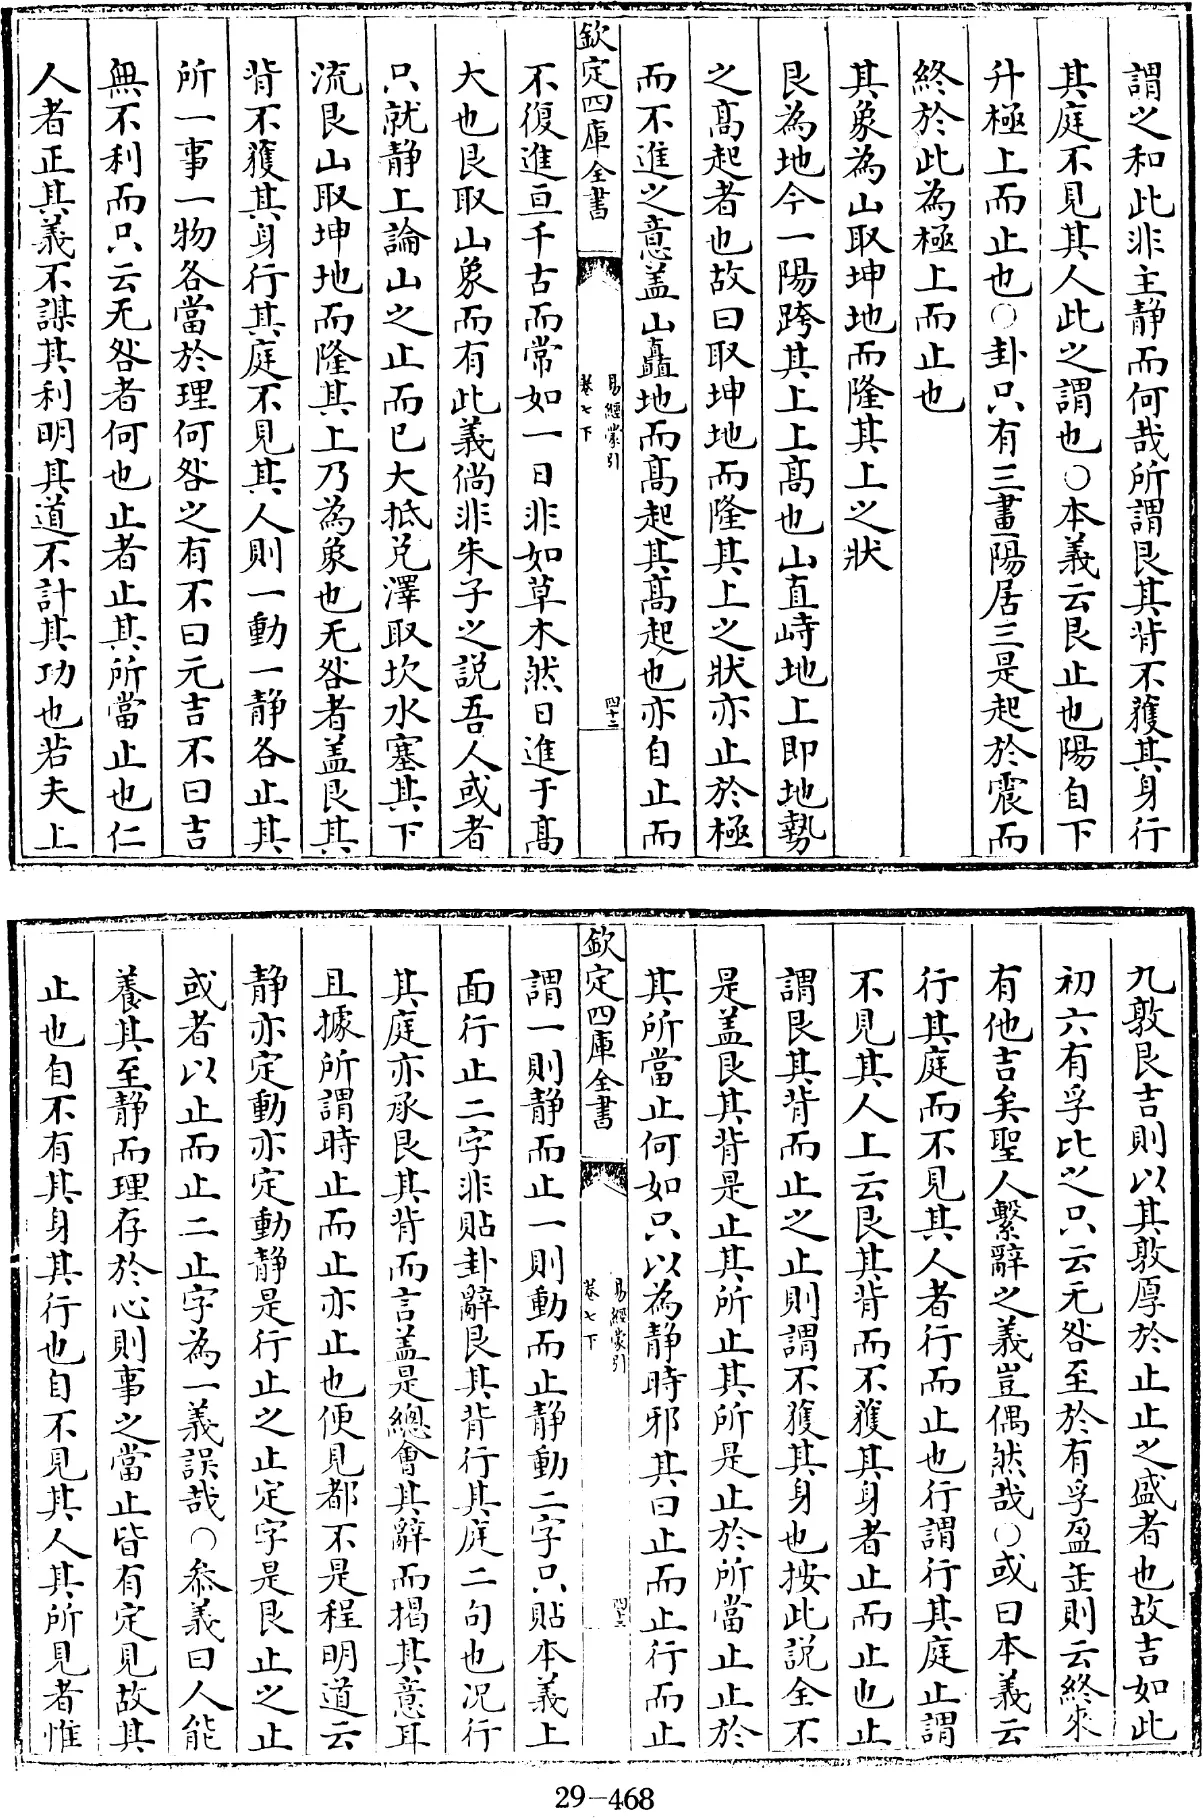 謂之和此非主静而何哉所謂艮其背不獲其身行
其庭不見其人此之謂也○本義云艮止也陽自下
升極上而止也○卦只有三畫陽居三是起於震而
終於此為極上而止也
其象為山取坤地而隆其上之狀
艮為地今一陽跨其上上髙也山直峙地上即地勢
之髙起者也故曰取坤地而隆其上之狀亦止於極
而不進之意盖山矗地而髙起其髙起也亦自止而
欽定四庫全書
易經蒙引
卷七下
四十二
不復進亘千古而常如一日非如草木然日進于髙
大也艮取山象而有此義倘非朱子之説吾人或者
只就静上論山之止而已大抵兑澤取坎水塞其下
流艮山取坤地而隆其上乃為象也无咎者盖艮其
背不獲其身行其庭不見其人則一動一静各止其
所一事一物各當於理何咎之有不曰元吉不曰吉
無不利而只云无咎者何也止者止其所當止也仁
人者正其義不謀其利明其道不計其功也若夫上
九敦艮吉則以其敦厚於止止之盛者也故吉如此
初六有孚比之只云无咎至於有孚盈缶則云終來
有他吉矣聖人繫辭之義豈偶然哉○或曰本義云
行其庭而不見其人者行而止也行謂行其庭止謂
不見其人上云艮其背而不獲其身者止而止也止
謂艮其背而止之止則謂不獲其身也按此説全不
是盖艮其背是止其所止其所是止於所當止止於
其所當止何如只以為静時邪其曰止而止行而止
欽定四庫全書
易經蒙引
卷七下
四十三
謂一則静而止一則動而止静動二字只貼本義上
面行止二字非貼卦辭艮其背行其庭二句也况行
其庭亦承艮其背而言盖是總會其辭而揭其意耳
且據所謂時止而止亦止也便見都不是程明道云
静亦定動亦定動静是行止之止定字是艮止之止
或者以止而止二止字為一義誤哉○叅義曰人能
養其至静而理存於心則事之當止皆有定見故其
止也自不有其身其行也自不見其人其所見者惟
29-468